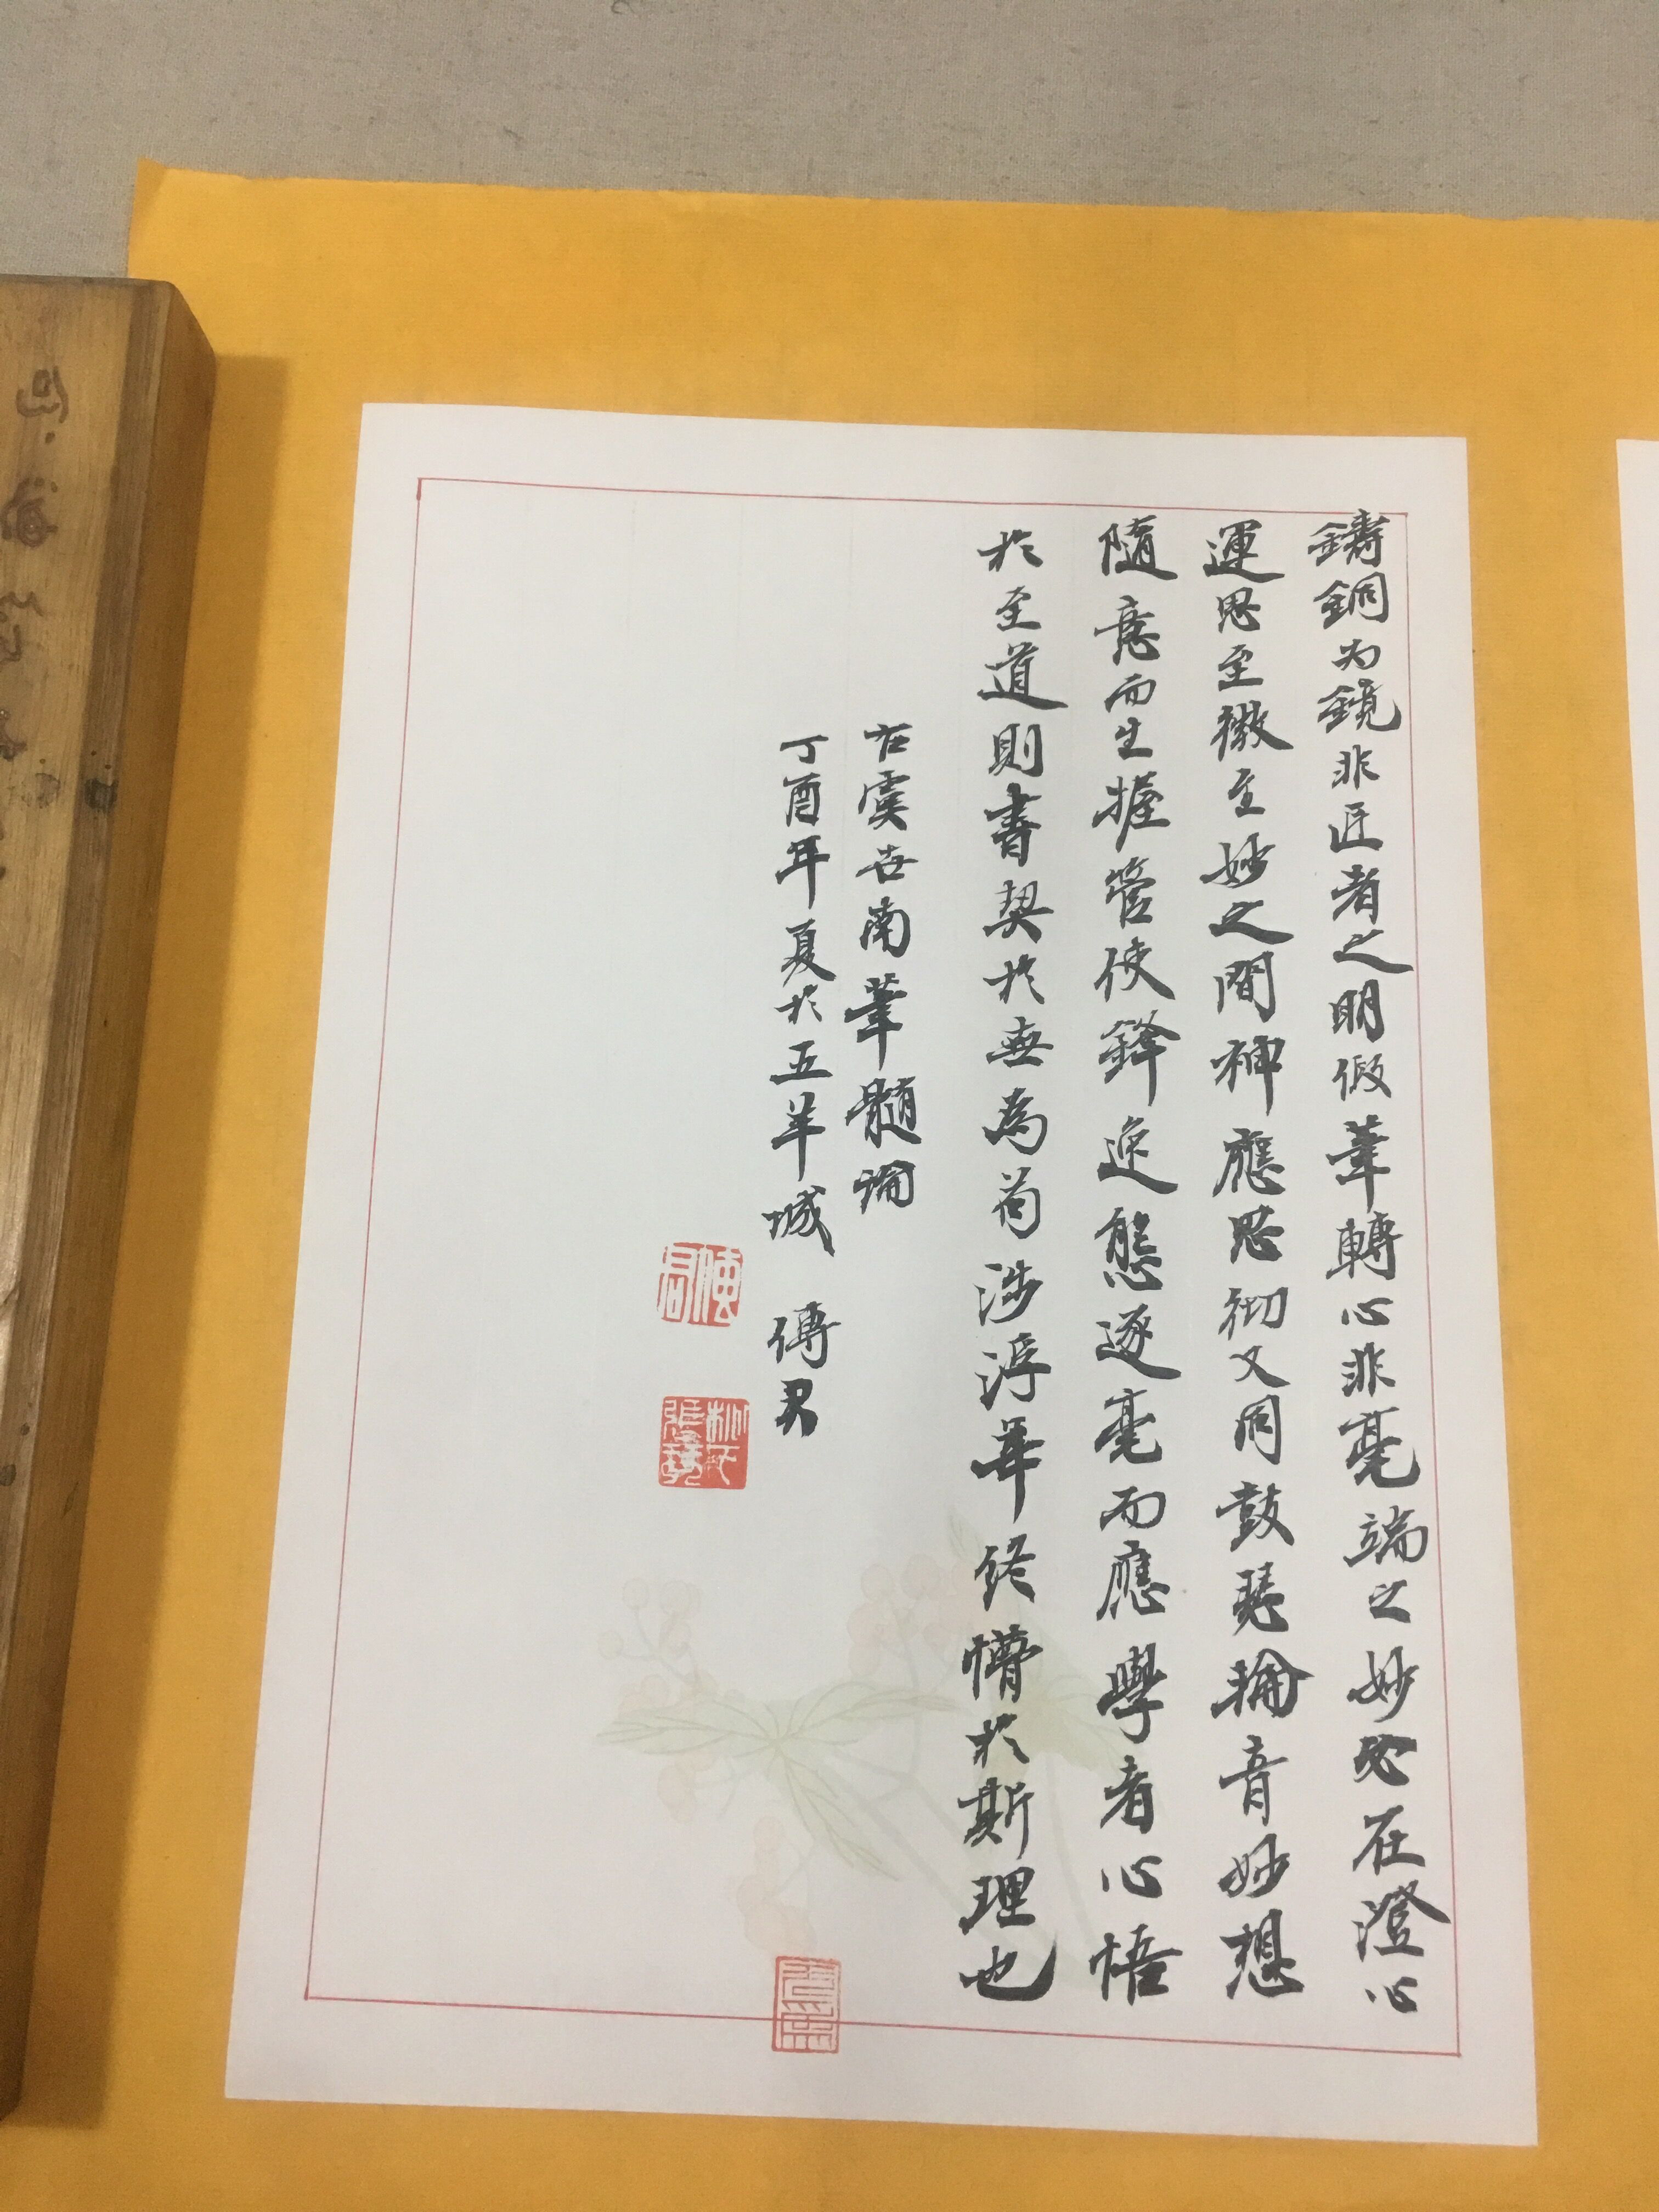 鑄銅为鏡非匠者之明假筆轉心非毫端之妙必在澄心
運思至微至妙之間神應思彻又同鼓瑟輪音妙想
隨意而生握管使鋒逸態逐毫而應學者心悟
於至道則書契於無為苟涉浮華终懵於斯理也
右虞世南筆髓論
丁酉年夏於五羊城 傅君